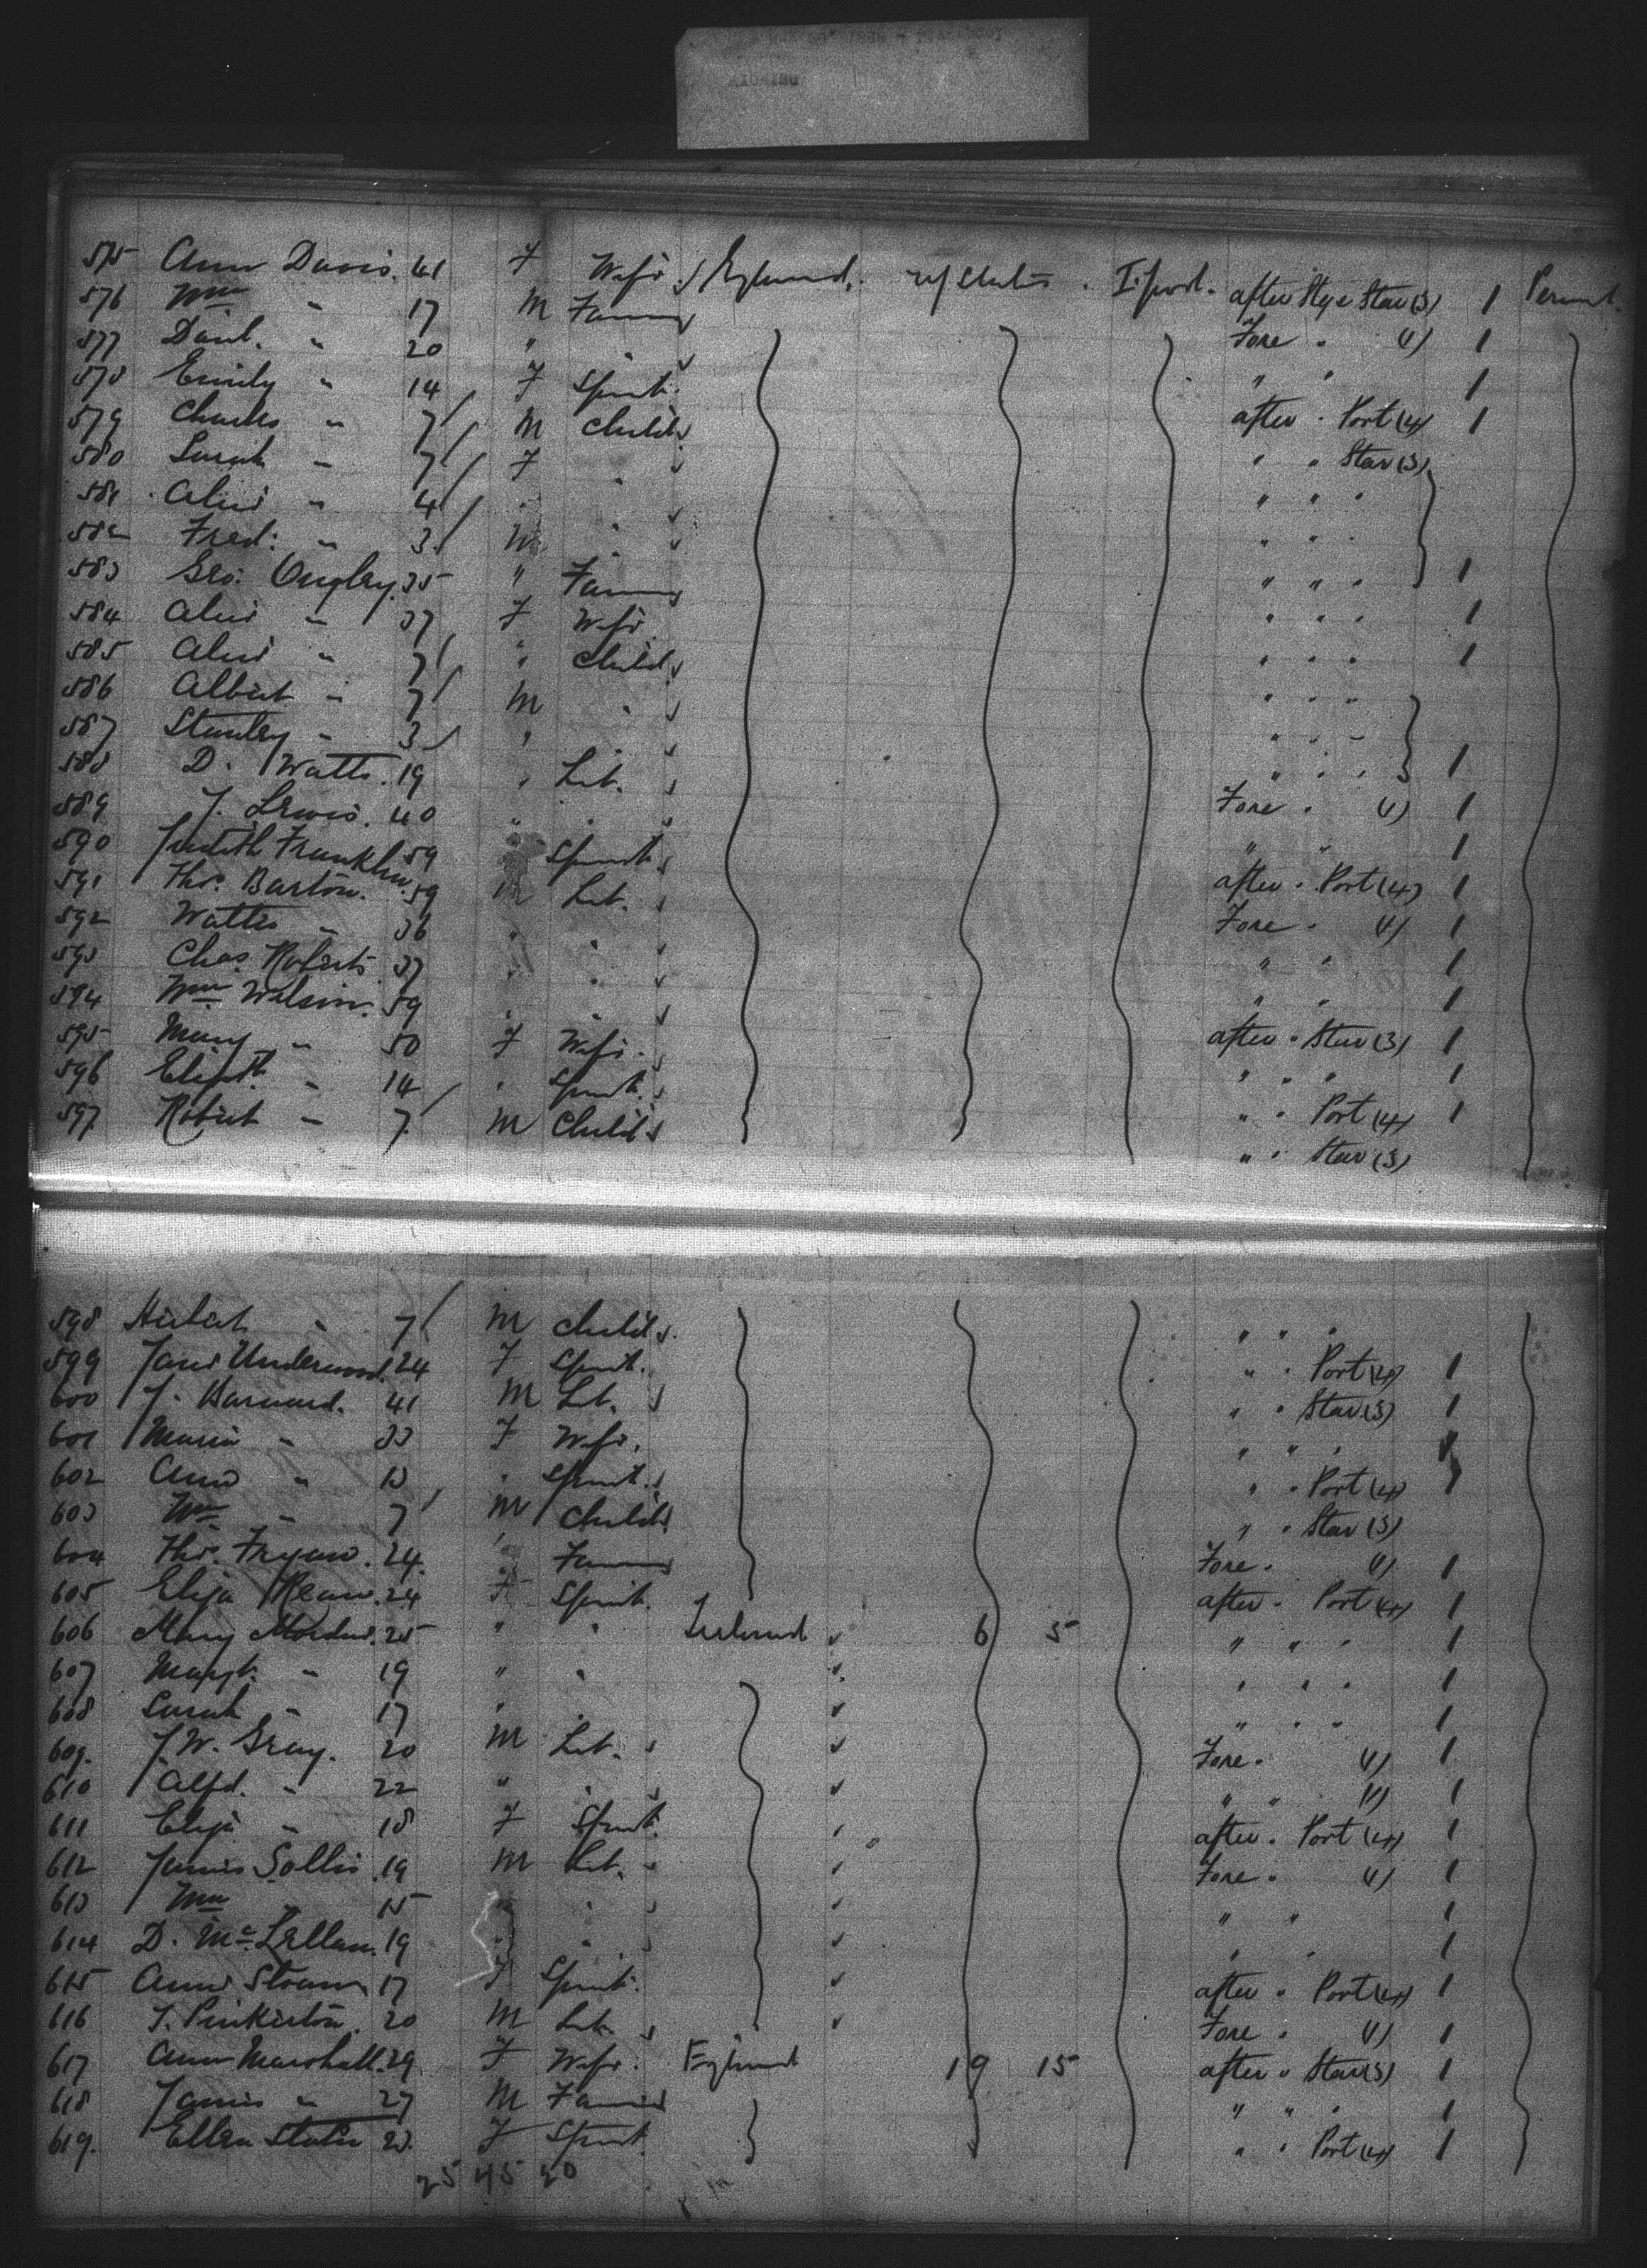 575 Ann Davis. 41 F Wife England. U/States. L'pool. after Stge Star (3) 1 Permt.
576 Wm " 17 M Farmer Fore " (1) 1
577 Danl. " 20 " " " " 1
578 Emily " 14 F Spinst. after " Port (4) 1
579 Charles " 7 M Child " " Star (3)
580 Sarah " 7 F " " " "
581 Alice " 4 " " " " "
582 Fred: " 3 M " " " " 1
583 Geo. 35 " Farmer " " " 1
584 Alice " 37 F Wife " " " 1
585 Alice " 7 " Child " " "
586 Albert " 7 M " " " "
587 Stanley " 3 " " " " " 1
588 D. Watts. 19 " Lab. Fore " (1) 1
589 J. Lewis. 40 " " " " 1
590 Judith Franklin 59 Spinst. after " Port (4) 1
591 Thos. Barton. 59 M Lab. Fore " (1) 1
592 Walter " 36 " " " " 1
593 Chas. Roberts 37 " " " " 1
594 Wm Wilson. 59 " " after " Star (3) 1
595 Mary " 50 F Wife. " " " 1
596 Elizth. " 14 " Spinst. " " Port (4) 1
597 Robert " 7 M Child " " Star (3)
598 Herbert " 7 M Child " " "
599 Jane Underwood. 24 F Spinst. " " Port (4) 1
600 J. Barnard. 41 M Lab. " " Star (3) 1
601 Maria " 33 F Wife. " " "
602 Ann " 13 " Spinst. " " Port (4)
603 Wm " 7 M Child " " Star (3)
604 Thos. 24 " Farmer Fore " (1) 1
605 Eliza 24 F Spinst. after " Port (4) 1
606 Mary 25 " " Ireland 6 5 " " " 1
607 Margt. " 19 " " " " "
608 Sarah " 17 " " " " " 1
609. J. W. Gray. 20 M Lab. Fore " (1) 1
610 Alfd. " 22 " " " " (1) 1
611 Eliza " 18 F Spinst. after " Port (4) 1
612 James Sollis 19 M Lab. Fore " (1) 1
613 Wm " 15 " " " " 1
614 D. McLellan. 19 " " " " 1
615 Annie 17 F Spinst. after " Port (4) 1
616 J. Pinkerton. 20 M Lab. Fore " (1) 1
617 Ann Marshall. 29 F Wife. England 19 15 after " Star (3) 1
618 James " 27 M Farmer " " " 1
619. Ellen F Spinst. " " Port (4) 1
25 45 20